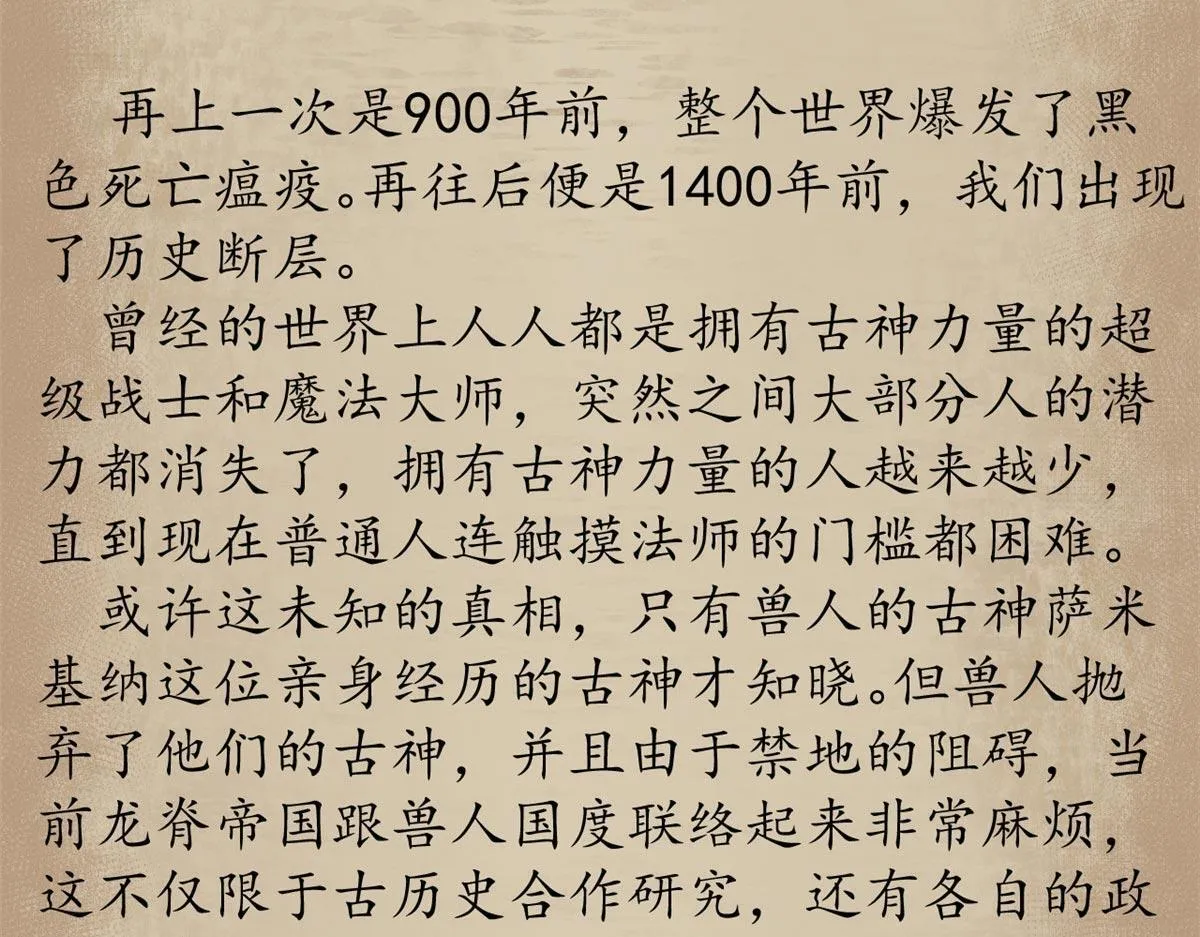 再上一次是900年前，整个世界爆发了黑
色死亡瘟疫。再往后便是1400年前，我们出现
了历史断层。
曾经的世界上人人都是拥有古神力量的超
级战士和魔法大师，突然之间大部分人的潜
力都消失了，拥有古神力量的人越来越少，
直到现在普通人连触摸法师的门槛都困难。
或许这未知的真相，只有兽人的古神萨米
基纳这位亲身经历的古神才知晓。但兽人抛
弃了他们的古神，并且由于禁地的阻碍，当
前龙脊帝国跟兽人国度联络起来非常麻烦，
这不仅限于古历史合作研究，还有各自的政